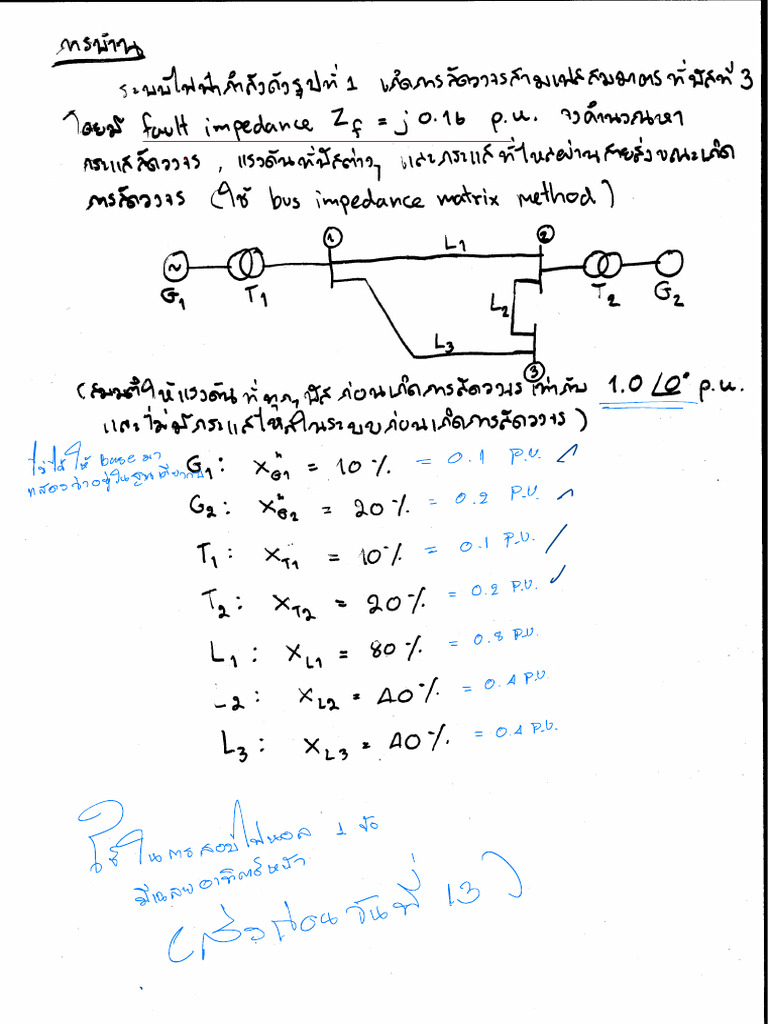 การบ้าน
ระบบไฟฟ้ากำลังดังรูปที่ 1 เกิดการลัดวงจรสามเฟสสมมาตรที่บัสที่ 3
โดยมี fault impedance Zf = j 0.16 p.u. จงคำนวณหา
กระแสลัดวงจร , แรงดันที่บัสต่างๆ และกระแสที่ไหลผ่านสายส่งขณะเกิด
การลัดวงจร (ใช้ bus impedance matrix method)
1 L1 2
~
G1 T1 T2 G2
L2
L3
3
(สมมติให้แรงดันที่ทุกๆ บัสก่อนเกิดการลัดวงจรเท่ากับ 1.0 ∠0° p.u.
และไม่มีกระแสไหลในระบบก่อนเกิดการลัดวงจร)
ไม่ได้ให้ base มา
แสดงว่าอยู่ในฐานเดียวกัน
G1 : X"G1 = 10 % = 0.1 P.U.
G2 : X"G2 = 20 % = 0.2 P.U.
T1 : XT1 = 10 % = 0.1 P.U.
T2 : XT2 = 20 % = 0.2 P.U.
L1 : XL1 = 80 % = 0.8 P.U.
-2 : XL2 = 40 % = 0.4 P.U.
L3 : XL3 = 40 % = 0.4 P.U.
ใช้ในการสอบไฟนอล 1 ข้อ
มีเฉลยอาทิตย์หน้า
(ส่งก่อนวันที่ 13)